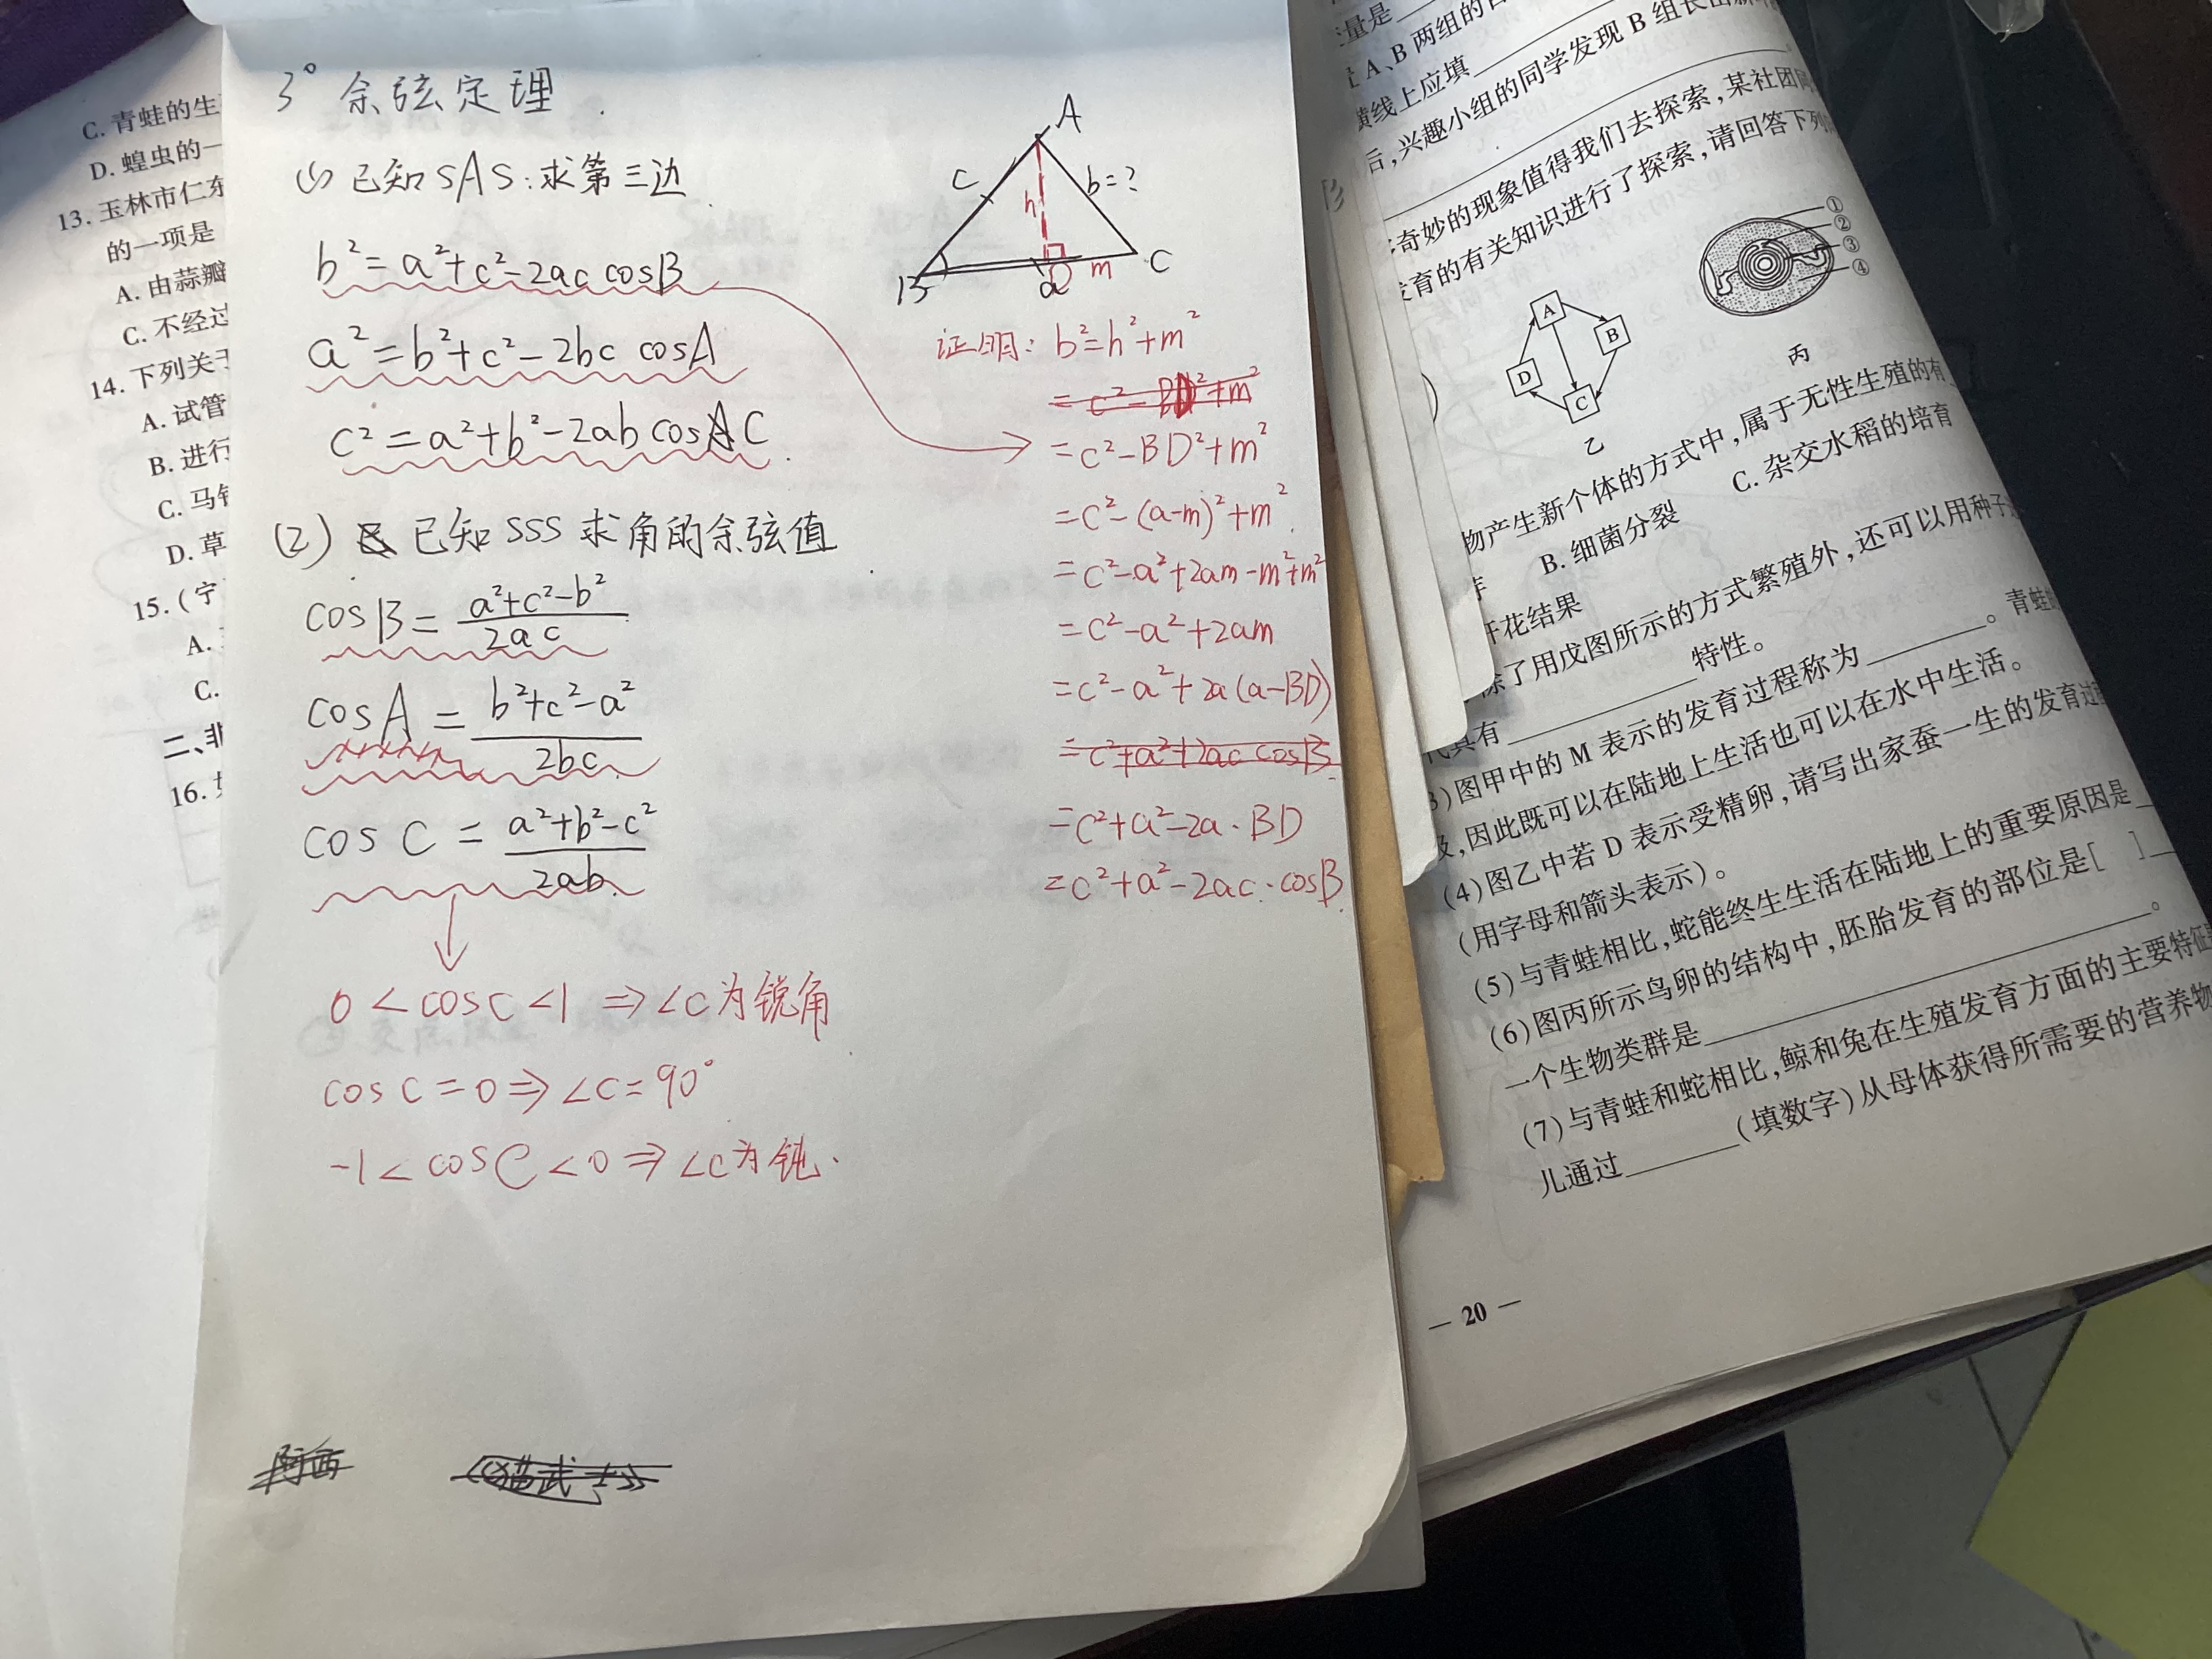 C. 青蛙的生
D. 蝗虫的一
13. 玉林市仁东
的一项是
A. 由蒜瓣
C. 不经过
14. 下列关于
A. 试管
B. 进行
C. 马铃
D. 草
15. (宁
A.
C.
二、非
16. 
3° 余弦定理
(1) 已知SAS:求第三边
b²=a²+c²-2ac cosB
a²=b²+c²-2bc cosA
c²=a²+b²-2ab cosC
(2) 已知SSS 求角的余弦值
cosB=(a²+c²-b²)/2ac
cosA=(b²+c²-a²)/2bc
cos C=(a²+b²-c²)/2ab
0<cosC<1 ⇒∠C为锐角
cos C=0⇒∠C=90°
-1<cosC<0⇒∠C为钝.
A
c
b=?
h
B
D
a
m
C
证明: b²=h²+m²
=c²-BD²+m²
=c²-BD²+m²
=c²-(a-m)²+m²
=c²-a²+2am-m²+m²
=c²-a²+2am
=c²-a²+2a(a-BD)
=c²+a²+2ac cosB
=c²+a²-2a·BD
=c²+a²-2ac·cosB
量是
A、B 两组的
横线上应填
后,兴趣小组的同学发现 B 组长出新
奇妙的现象值得我们去探索,某社团同
发育的有关知识进行了探索,请回答下列
①
②
③
④
A
B
D
C
乙
丙
物产生新个体的方式中,属于无性生殖的有
B. 细菌分裂
C. 杂交水稻的培育
开花结果
除了用戊图所示的方式繁殖外,还可以用种子
代具有 特性。
3)图甲中的 M 表示的发育过程称为 。青蛙
及,因此既可以在陆地上生活也可以在水中生活。
(4)图乙中若 D 表示受精卵,请写出家蚕一生的发育过
(用字母和箭头表示)。
(5)与青蛙相比,蛇能终生生活在陆地上的重要原因是
(6)图丙所示鸟卵的结构中,胚胎发育的部位是[ ]
一个生物类群是 。
(7)与青蛙和蛇相比,鲸和兔在生殖发育方面的主要特征
儿通过 (填数字)从母体获得所需要的营养物
— 20 —